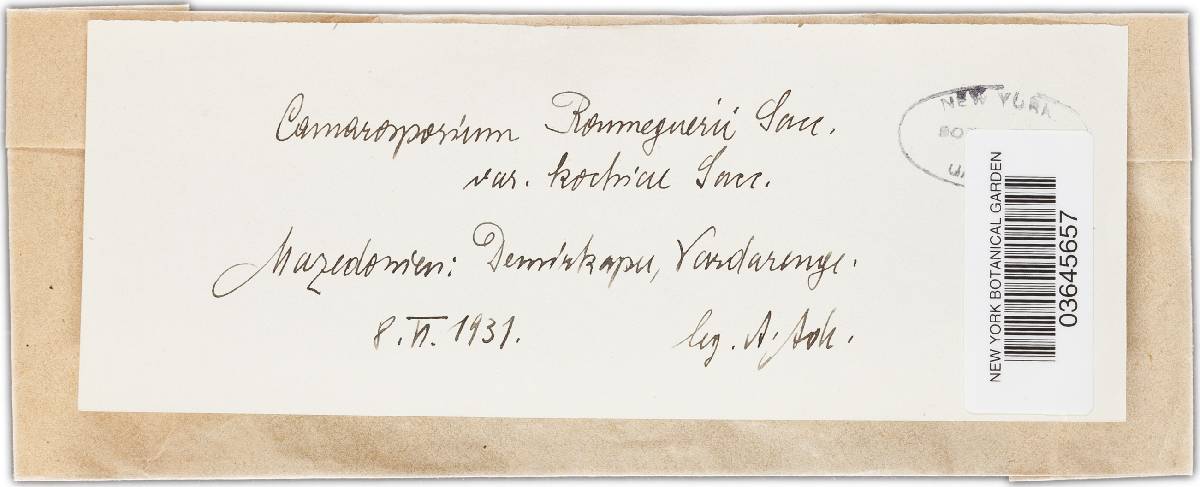 Camarosporium Roumeguerii Sacc.
var. kochiae Sacc.
Mazedonien: Demirkapu, Vardarenge.
8. VI. 1931. leg. A. Ade.
NEW YORK
NEW YORK BOTANICAL GARDEN
03645657